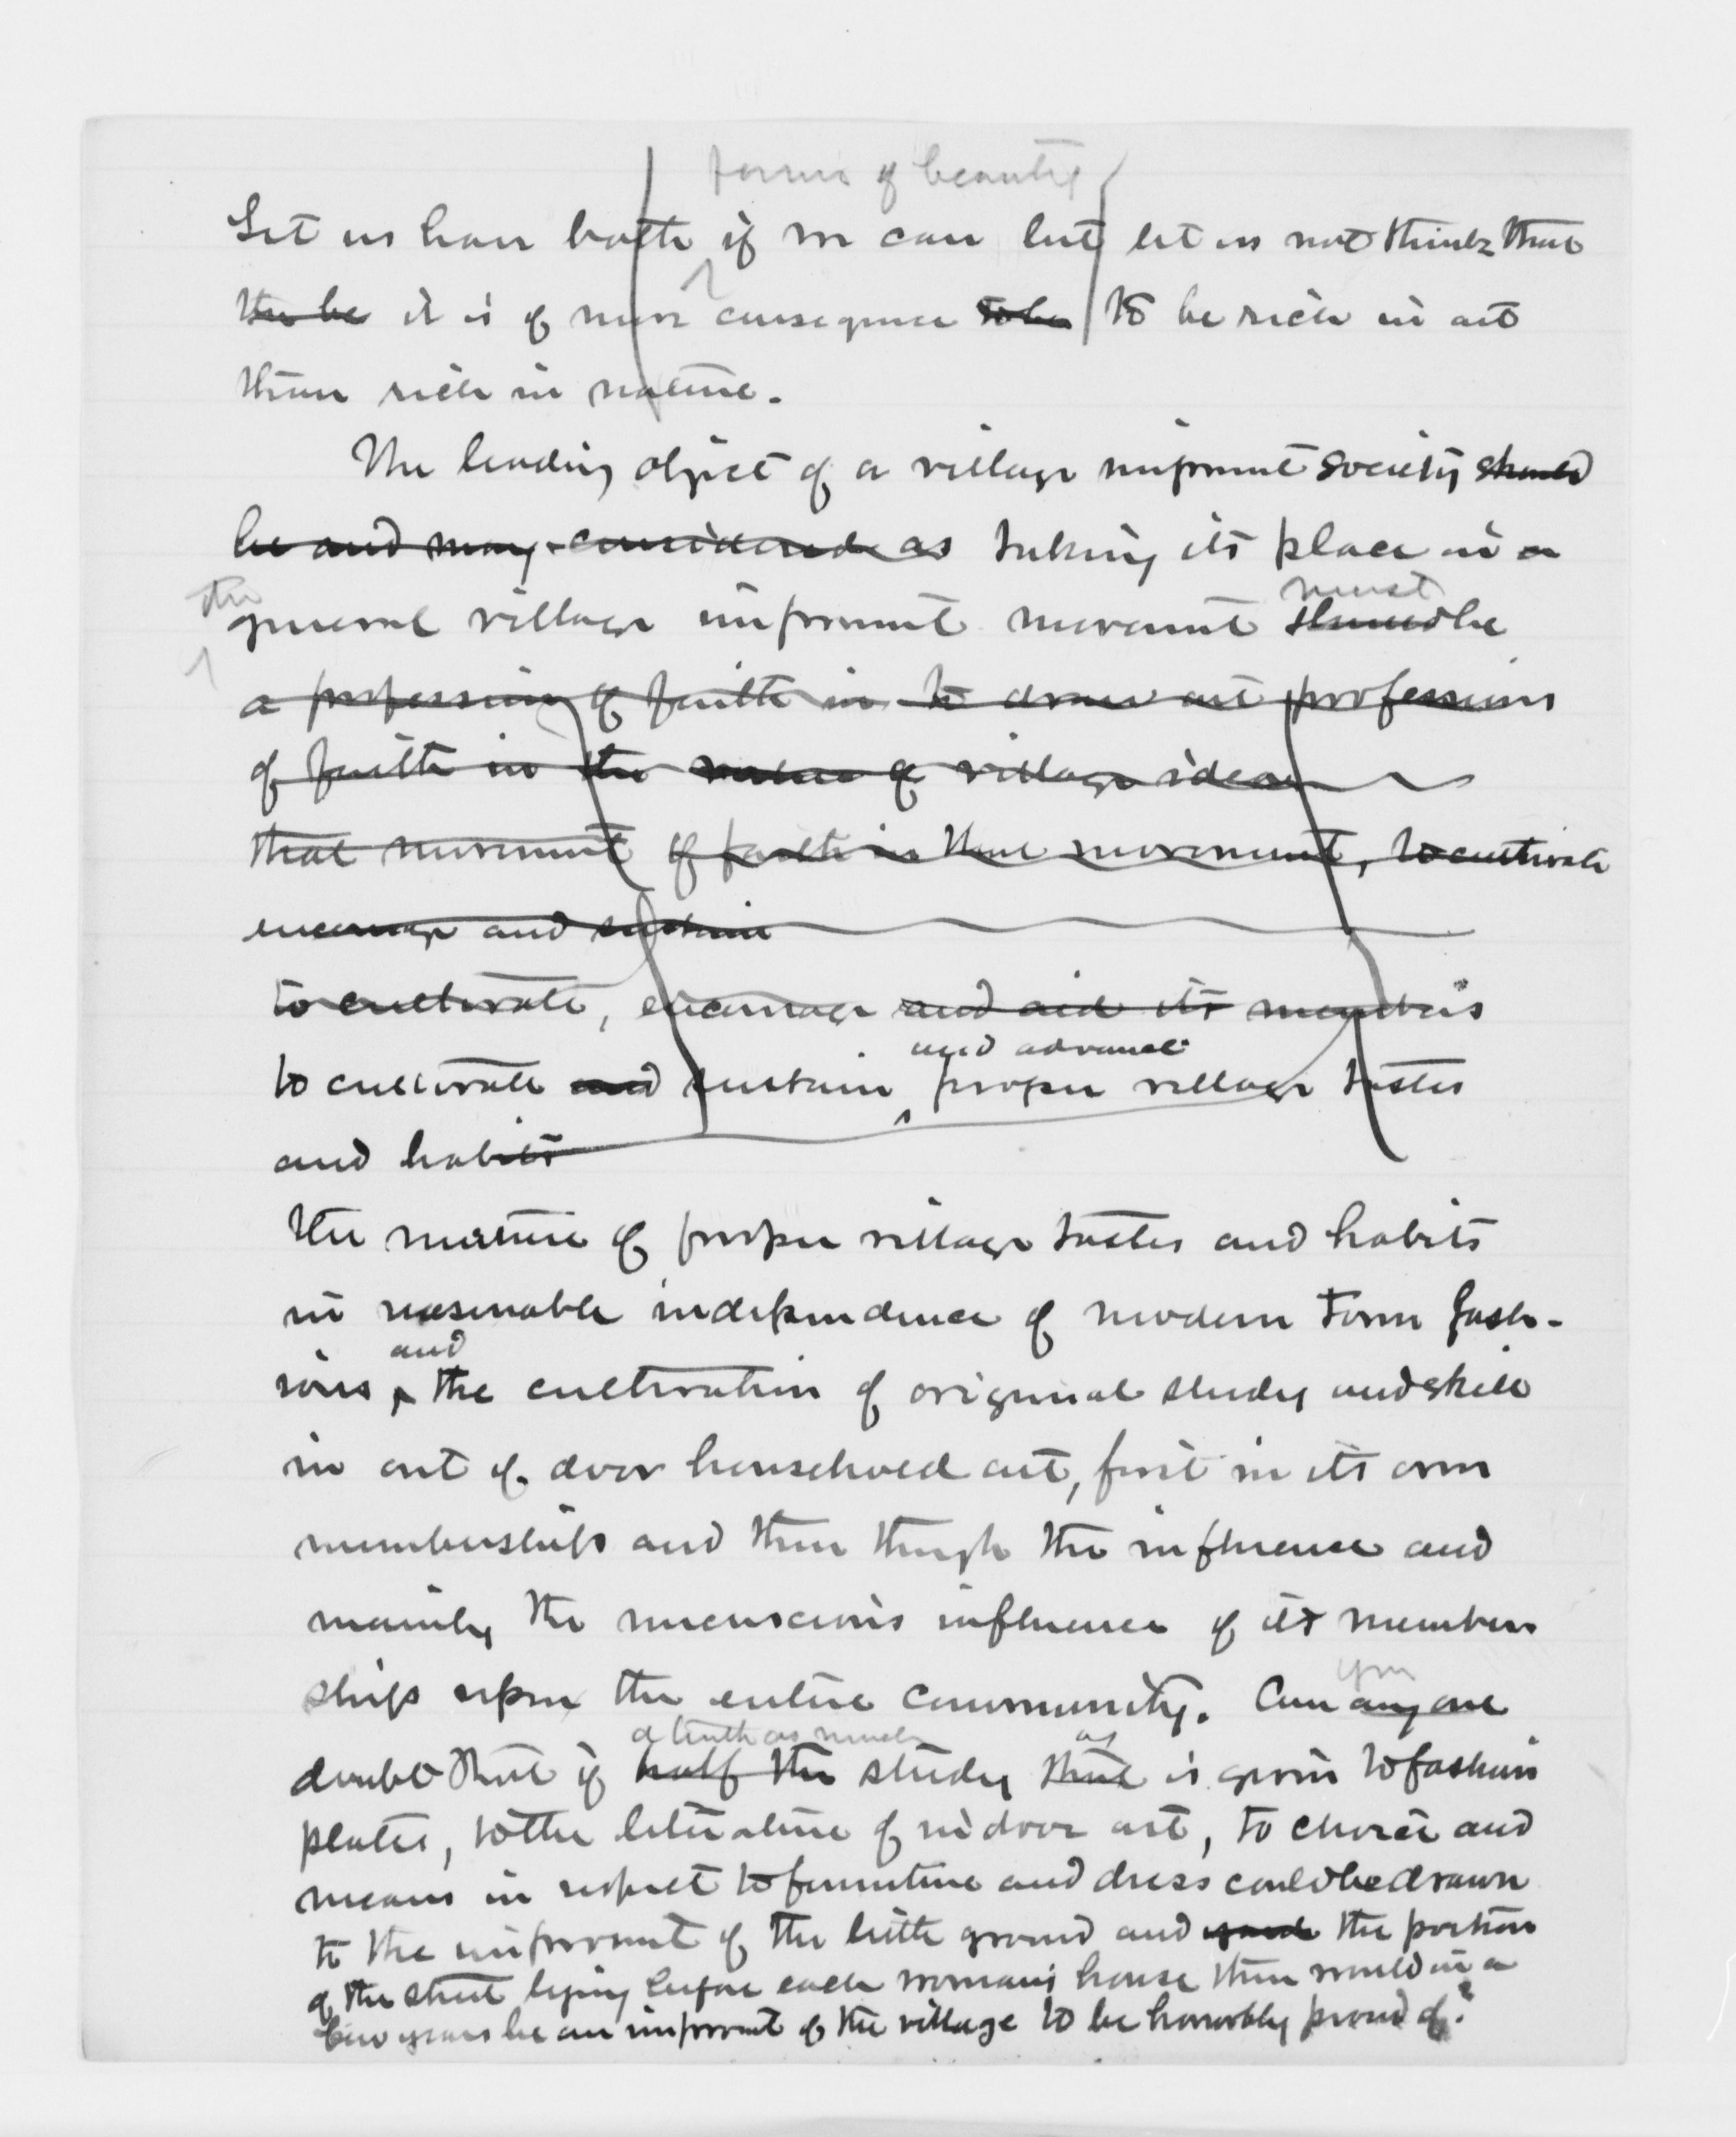 forms of beauty
Let us have both if we can but let us not think that
the be it is of more consequence to be to be rich in art
than rich in nature.
The leading object of a village improvement society should
be and may considered as taking its place in a
the
must
general village improvement movement should be
a profession of faith in to draw out professions
of faith in the value of village ideas
that movement of faith in that movement, to cultivate
encourage and sustain
to cultivate, encourage and aid its members
and advance
to cultivate and sustain proper village tastes
and habits
the nature of proper village tastes and habits
in reasonable independence of modern town fash-
and
ions, the cultivation of original study and skill
in out of door household art, first in its own
memberships and then through the influence and
mainly the unconscious influence of its member
ships upon the entire community. Can any one
you
a tenth as much as
doubt that if half the study that is given to fashion
plates, to the literature of indoor art, to choice and
means in respect to furniture and dress could be drawn
to the improvement of the little ground and yard the portion
of the street lying before each woman's house there would in a
few years be an improvement of the village to be honorably proud of?